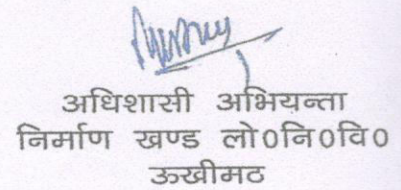 अधिशासी अभियन्ता
निर्माण खण्ड लो०नि०वि०
ऊखीमठ